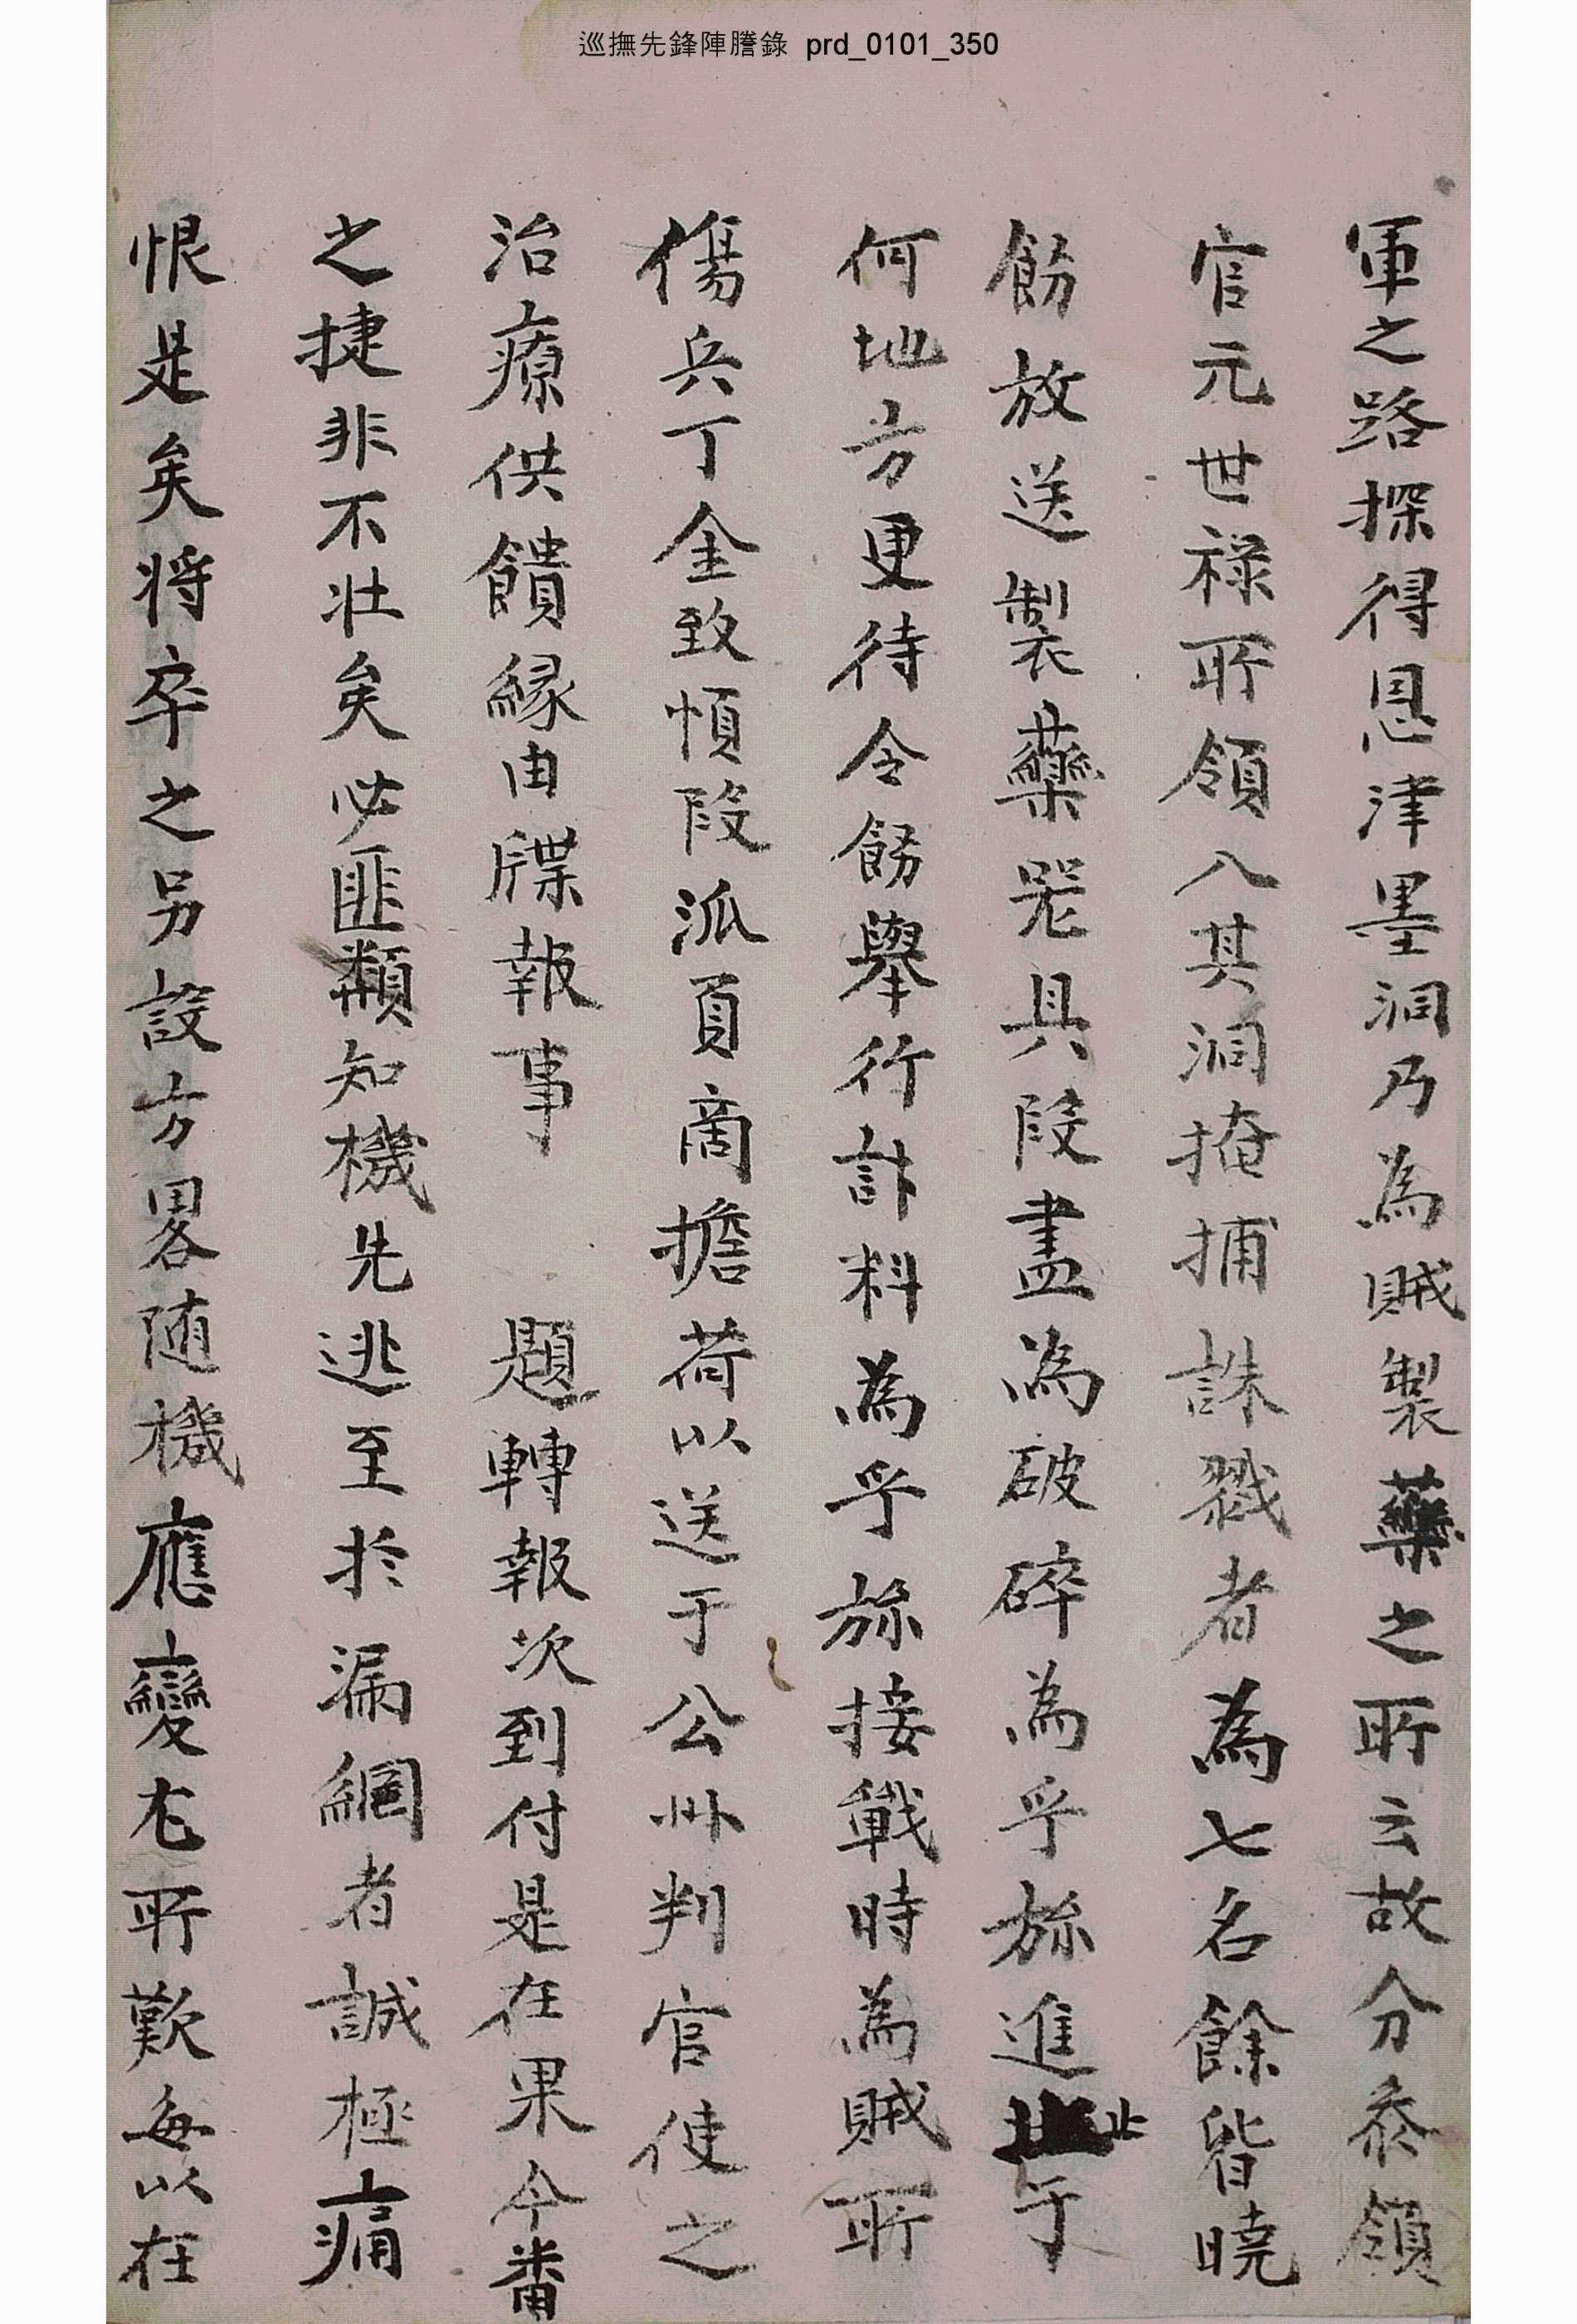 巡撫先鋒陣謄錄 prd_0101_350
軍之路探得恩津墨洞乃為賊製藥之所云故分叅領
官元世祿所領入其洞掩捕誅戮者為七名餘皆曉
飭放送製藥器具段盡為破碎為乎旀進止于
何地方更待令飭擧行計料為乎旀接戰時為賊所
傷兵丁金致順段派員啇擔荷以送于公州判官使之
治療供饋緣由牒報事 題轉報次到付是在果今番
之捷非不壯矣必匪類知機先逃至於漏網者誠極痛
恨是矣將卒之另設方畧随機應變尤所歎每以在